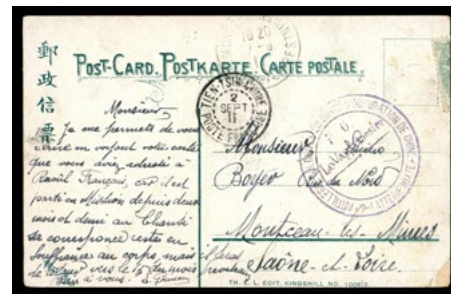 郵政信票
POST-CARD. POSTKARTE. CARTE POSTALE.
TIEN-TSIN-CHINE
2
SEPT
11
POSTE
Monsieur
Je me permets de vous
écrire en voyant votre carte
que vous aviez adressée à
Raoul Français, car il est
parti en Mission depuis deux
mois et demi au Chanti
sa correspondance reste en
souffrance au corps, mais il sera
le vers le 15 du mois prochain
bien à vous.
Monsieur
Boyer Rue du Nord
Montceau-les-Mines
Saône-et-Loire.
TH. E. L. EDIT. KINGSHILL NO.